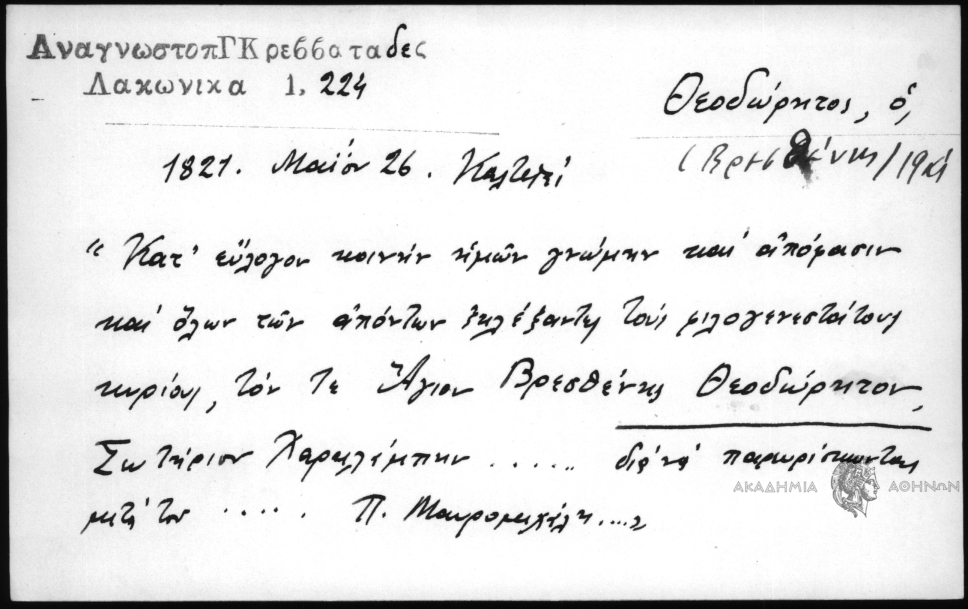 ΑναγνωστοπΓΚρεββαταδες
Λακωνικα 1, 224
Θεοδώρητος, ὁ,
(Βρεσθένης)
1821. Μαΐου 26. Καλτεζαί
" Κατ' εὔλογον κοινήν ἡμῶν γνώμην καί ἀπόφασιν
καί ὅλων τῶν ἀπόντων ἐκλέξαντες τούς φιλογενεστάτους
κυρίους, τόν τε Ἅγιον Βρεσθένης Θεοδώρητον,
Σωτήριον Χαραλάμπην ...... διά νά παρευρίσκωνται
μετά τοῦ ..... Π. Μαυρομιχάλη ...."
ΑΚΑΔΗΜΙΑ ΑΘΗΝΩΝ